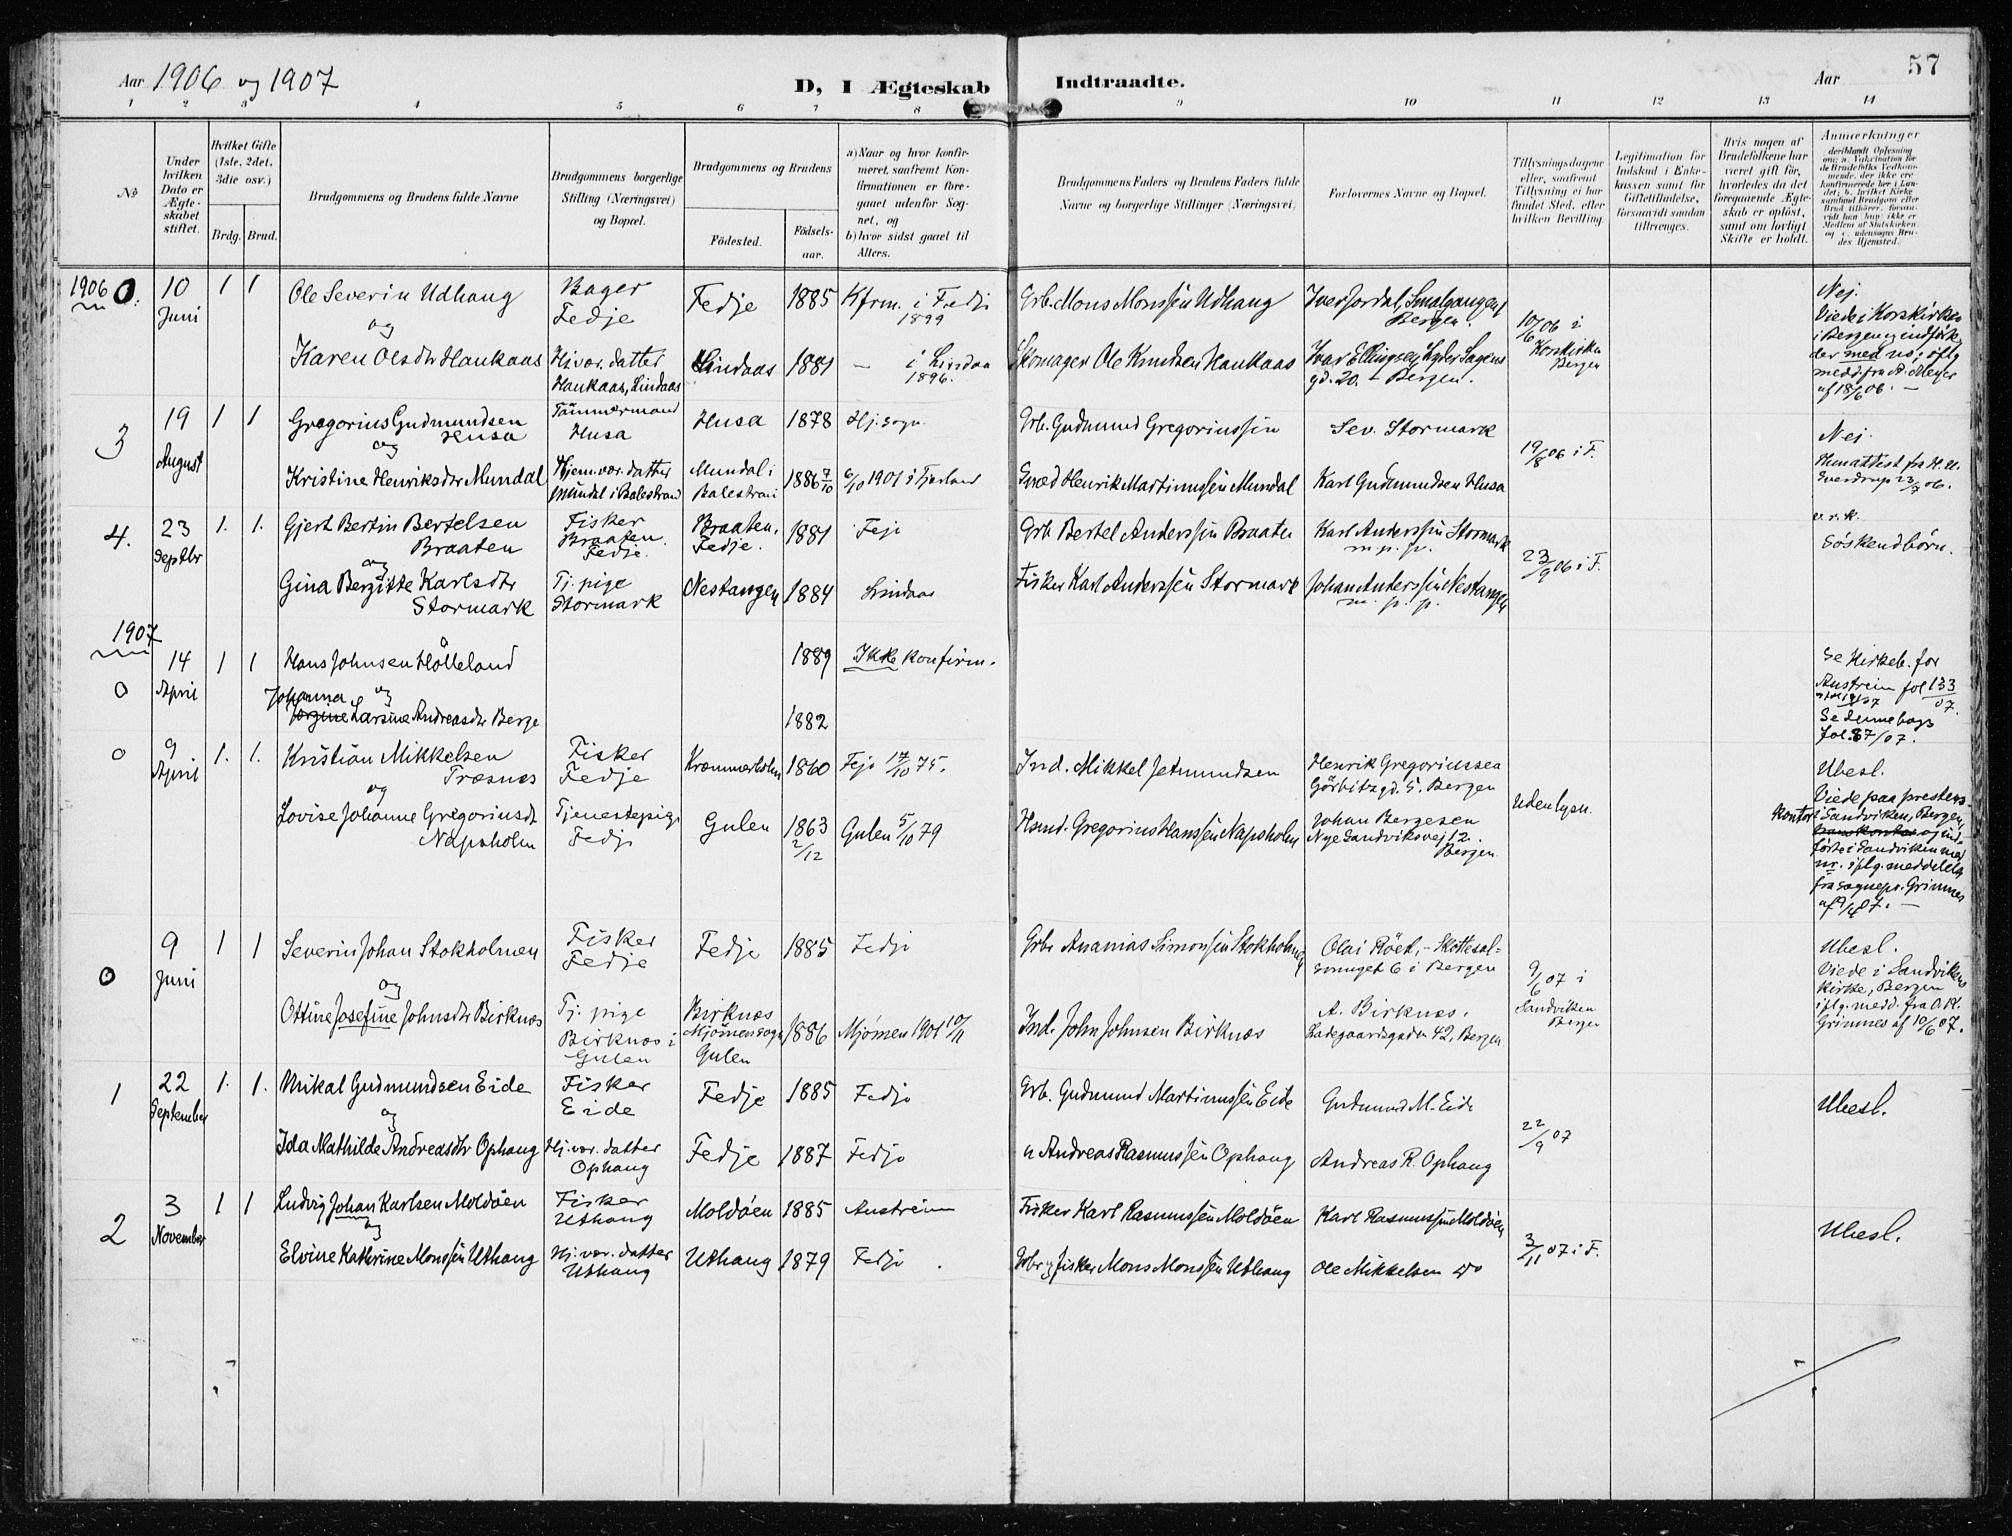 Aar 1906 og 1907
D, I Ægteskab Indtraadte.
Aar
57
1 2 3 4 5 6 7 8 9 10 11 12 13 14
No
Under hvilken Dato er Ægteskabet stiftet.
Hvilket Gifte (1ste, 2det, 3die osv.)
Brdg. Brud.
Brudgommens og Brudens fulde Navne
Brudgommens borgerlige Stilling (Næringsvei) og Bopæl.
Brudgommens og Brudens
Födested. Födselsaar.
a) Naar og hvor konfirmeret, saafremt Konfirmationen er foregaaet udenfor Sognet, og
b) hvor sidst gaaet til Alters.
Brudgommens Faders og Brudens Faders fulde Navne og borgerlige Stillinger (Næringsvei)
Forlovernes Navne og Bopæl.
Tillysningsdagene eller, saafremt Tillysning ei har fundet Sted, efter hvilken Bevilling.
Legitimation for Indskud i Enkekassen samt for Giftetilladelse, forsaavidt saadan tiltrænges.
Hvis nogen af Brudefolkene har været gift för, hvorledes da det foregaaende Ægteskab er oplöst, samt om lovligt Skifte er holdt.
Anmerkninger
1906 0. 10 Juni 1 1 Ole Severin Udhaug Bager Fedje Fedje 1885 Kfrm. i Fedje 1899 Grb. Mons Monssen Udhaug Iver Jordal, Smalgangen, Bergen. 10/6 06 i Korskirken Bergen Nej.
Viede i Korskirken
i Bergen og indføres
der med no, iflg
medd. fra A. Meyer
af 18/6 06. -
og
Karen Olsdtr Haukaas Hj.vær. datter Haukaas, Lindaas Lindaas 1881 - i Lindaa 1896. Skomager Ole Knudsen Haukaas Ivar Ellingsen, Lyder Sagens gd. 20. - Bergen.
3 19 August 1 1 Gregorius Gudmundsen Husa Tömmermand Husa Husa 1878 Hj. sogn Grb. Gudmund Gregoriussen Sev. Stormark 19/8 06 i F. Nej.
og
Kristine Henriksdtr Mundal Hjem.vær. datter Mundal i Balestrand Mundal i Balestrand 1886 7/10 6/10 1901 i Fjærland Smed Henrik Martinussen Mundal Karl Gudmundsen Husa
4. 23 Septbr 1. 1. Gjert Bertin Bertelsen Braaten Fisker Braaten. Fedje. Braaten. Fedje. 1881 Feje Grb Bertel Anderssen Braaten Karl Anderssen Stormark m.p.p. 23/9 06 i F. Söskendbörn.
og
Gina Bergitte Karlsdtr Stormark Tj. pige Stormark Nestangen 1884 Lindaas Fisker Karl Anderssen Stormark Johan Anderssen Nestangen m.p.p.
1907
0 14 April 1 1 Hans Johnsen Hölleland 1889 Ikke konfirm. Se Kirkeb. for
Austrein fol 133
07.
fol. 87/07.
og
Johanna Larsine Andreasdtr Berge 1882
0 9 April 1. 1. Kristian Mikkelsen Træsnes Fisker Fedje Kræmmerholm 1860 Feje 17/10 75. Ind. Mikkel Jetmundsen Henrik Gregoriussen Görbitzgd. 5. Bergen Uden lysn. Ubesl.
Viede paa prestens
kontor i Sandviken, Bergen,
og ind-
førte i Sandviken med
nr. iflg. meddelelse
fra sognepr. Grimnes
af 9/4 07. -
og
Lovise Johanne Gregoriusdt Napsholm Tjenestepige Fedje Gulen 1863 2/12 Gulen 5/10 79 Hsmd. Gregorius Hanssen Napsholm Johan Bergesen Nye Sandviksvej 12. Bergen
0 9 Juni 1 1 Severin Johan Stokholmen Fisker Fedje Fedje 1885 Fedje Grbr Ananias Simonssen Stokholmen Olai Röet, - Skottesalsmuget 6 i Bergen 9/6 07 i Sandviken Bergen Ubesl.
Viede i Sandvikens
Kirke, Bergen
iflg. medd. fra O. K.
Grimnes af 10/6 07.
og
Ottine Josefine Johnsdtr Birknæs Tj. pige Birknæs i Gulen Birknæs Mjömen sogn Gulen 1886 Mjömen 1901 10/11 Ind. John Johnsen Birknæs A. Birknæs. Ladegaardsgaden 42, Bergen
1 22 September 1. 1. Mikal Gudmundsen Eide Fisker Eide Fedje 1885 Fedje Grb. Gudmund Martinussen Eide Gudmund M. Eide 22/9 07 Ubesl.
og
Ida Mathilde Andreasdtr Ophaug Hj. vær. datter Ophaug Fedje 1887 Fedje " Andreas Rasmussen Ophaug Andreas R. Ophaug
2 3 November 1 1 Ludvig Johan Karlsen Moldöen Fisker Uthaug Moldöen 1885 Austrein Fisker Karl Rasmussen Moldöen Karl Rasmussen Moldöen 3/11 07 i F. Ubesl.
og
Elvine Kathrine Monssen Uthaug Hj. vær. datter Uthaug Uthaug 1879 Fedje Grbr og fisker Mons Monssen Uthaug Ole Mikkelsen do